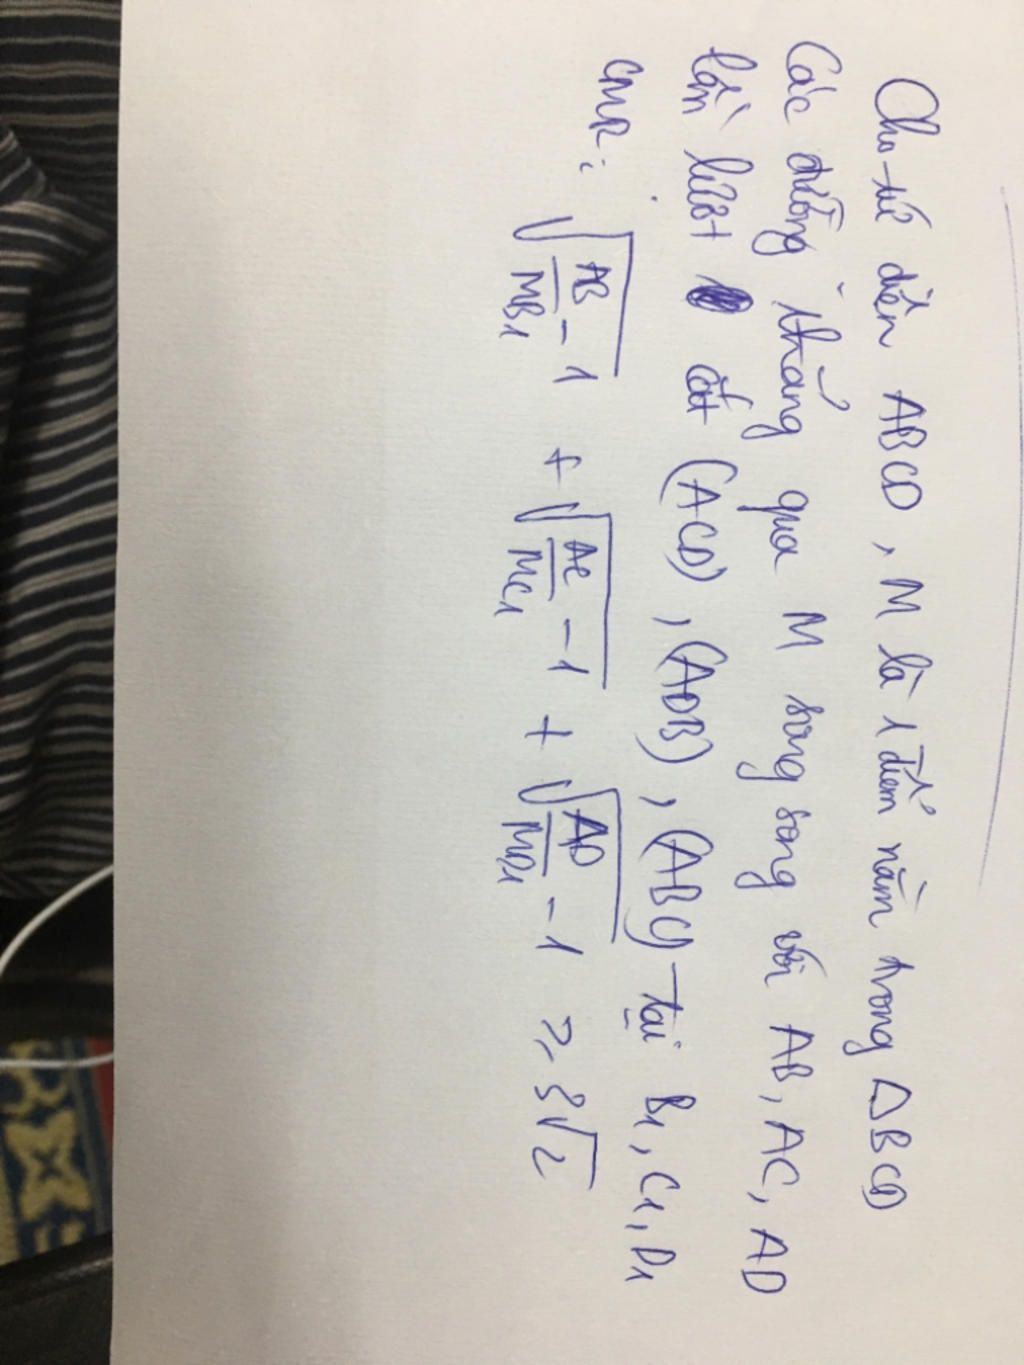 Cho tứ diện ABCD, M là 1 điểm nằm trong ΔBCD
Các đường thẳng qua M song song với AB, AC, AD
lần lượt cắt (ACD), (ADB), (ABC) tại B₁, C₁, D₁
CMR: √(AB/MB₁ - 1) + √(AC/MC₁ - 1) + √(AD/MD₁ - 1) ≥ 3√2